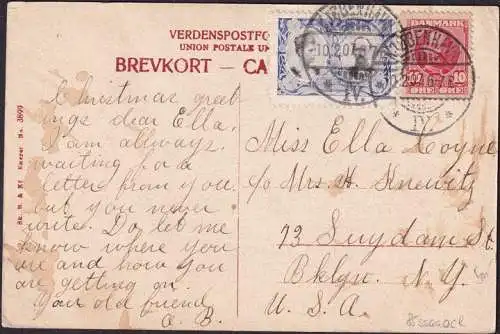 VERDENSPOSTFO
UNION POSTALE UN
BREVKORT — CA
DANMARK
10 10
ØRE ØRE
IV.
IV.
Christmas greet
ings dear Ella.
I am always
waiting for a
letter from you
but you never
write. Do let me
know where you
are and how you
are getting on.
Your old friend
A. B.
Miss Ella Coyne
c/o Mrs. H. Knewitz
73 Suydam St.
Bklyn. N. Y.
U. S. A.